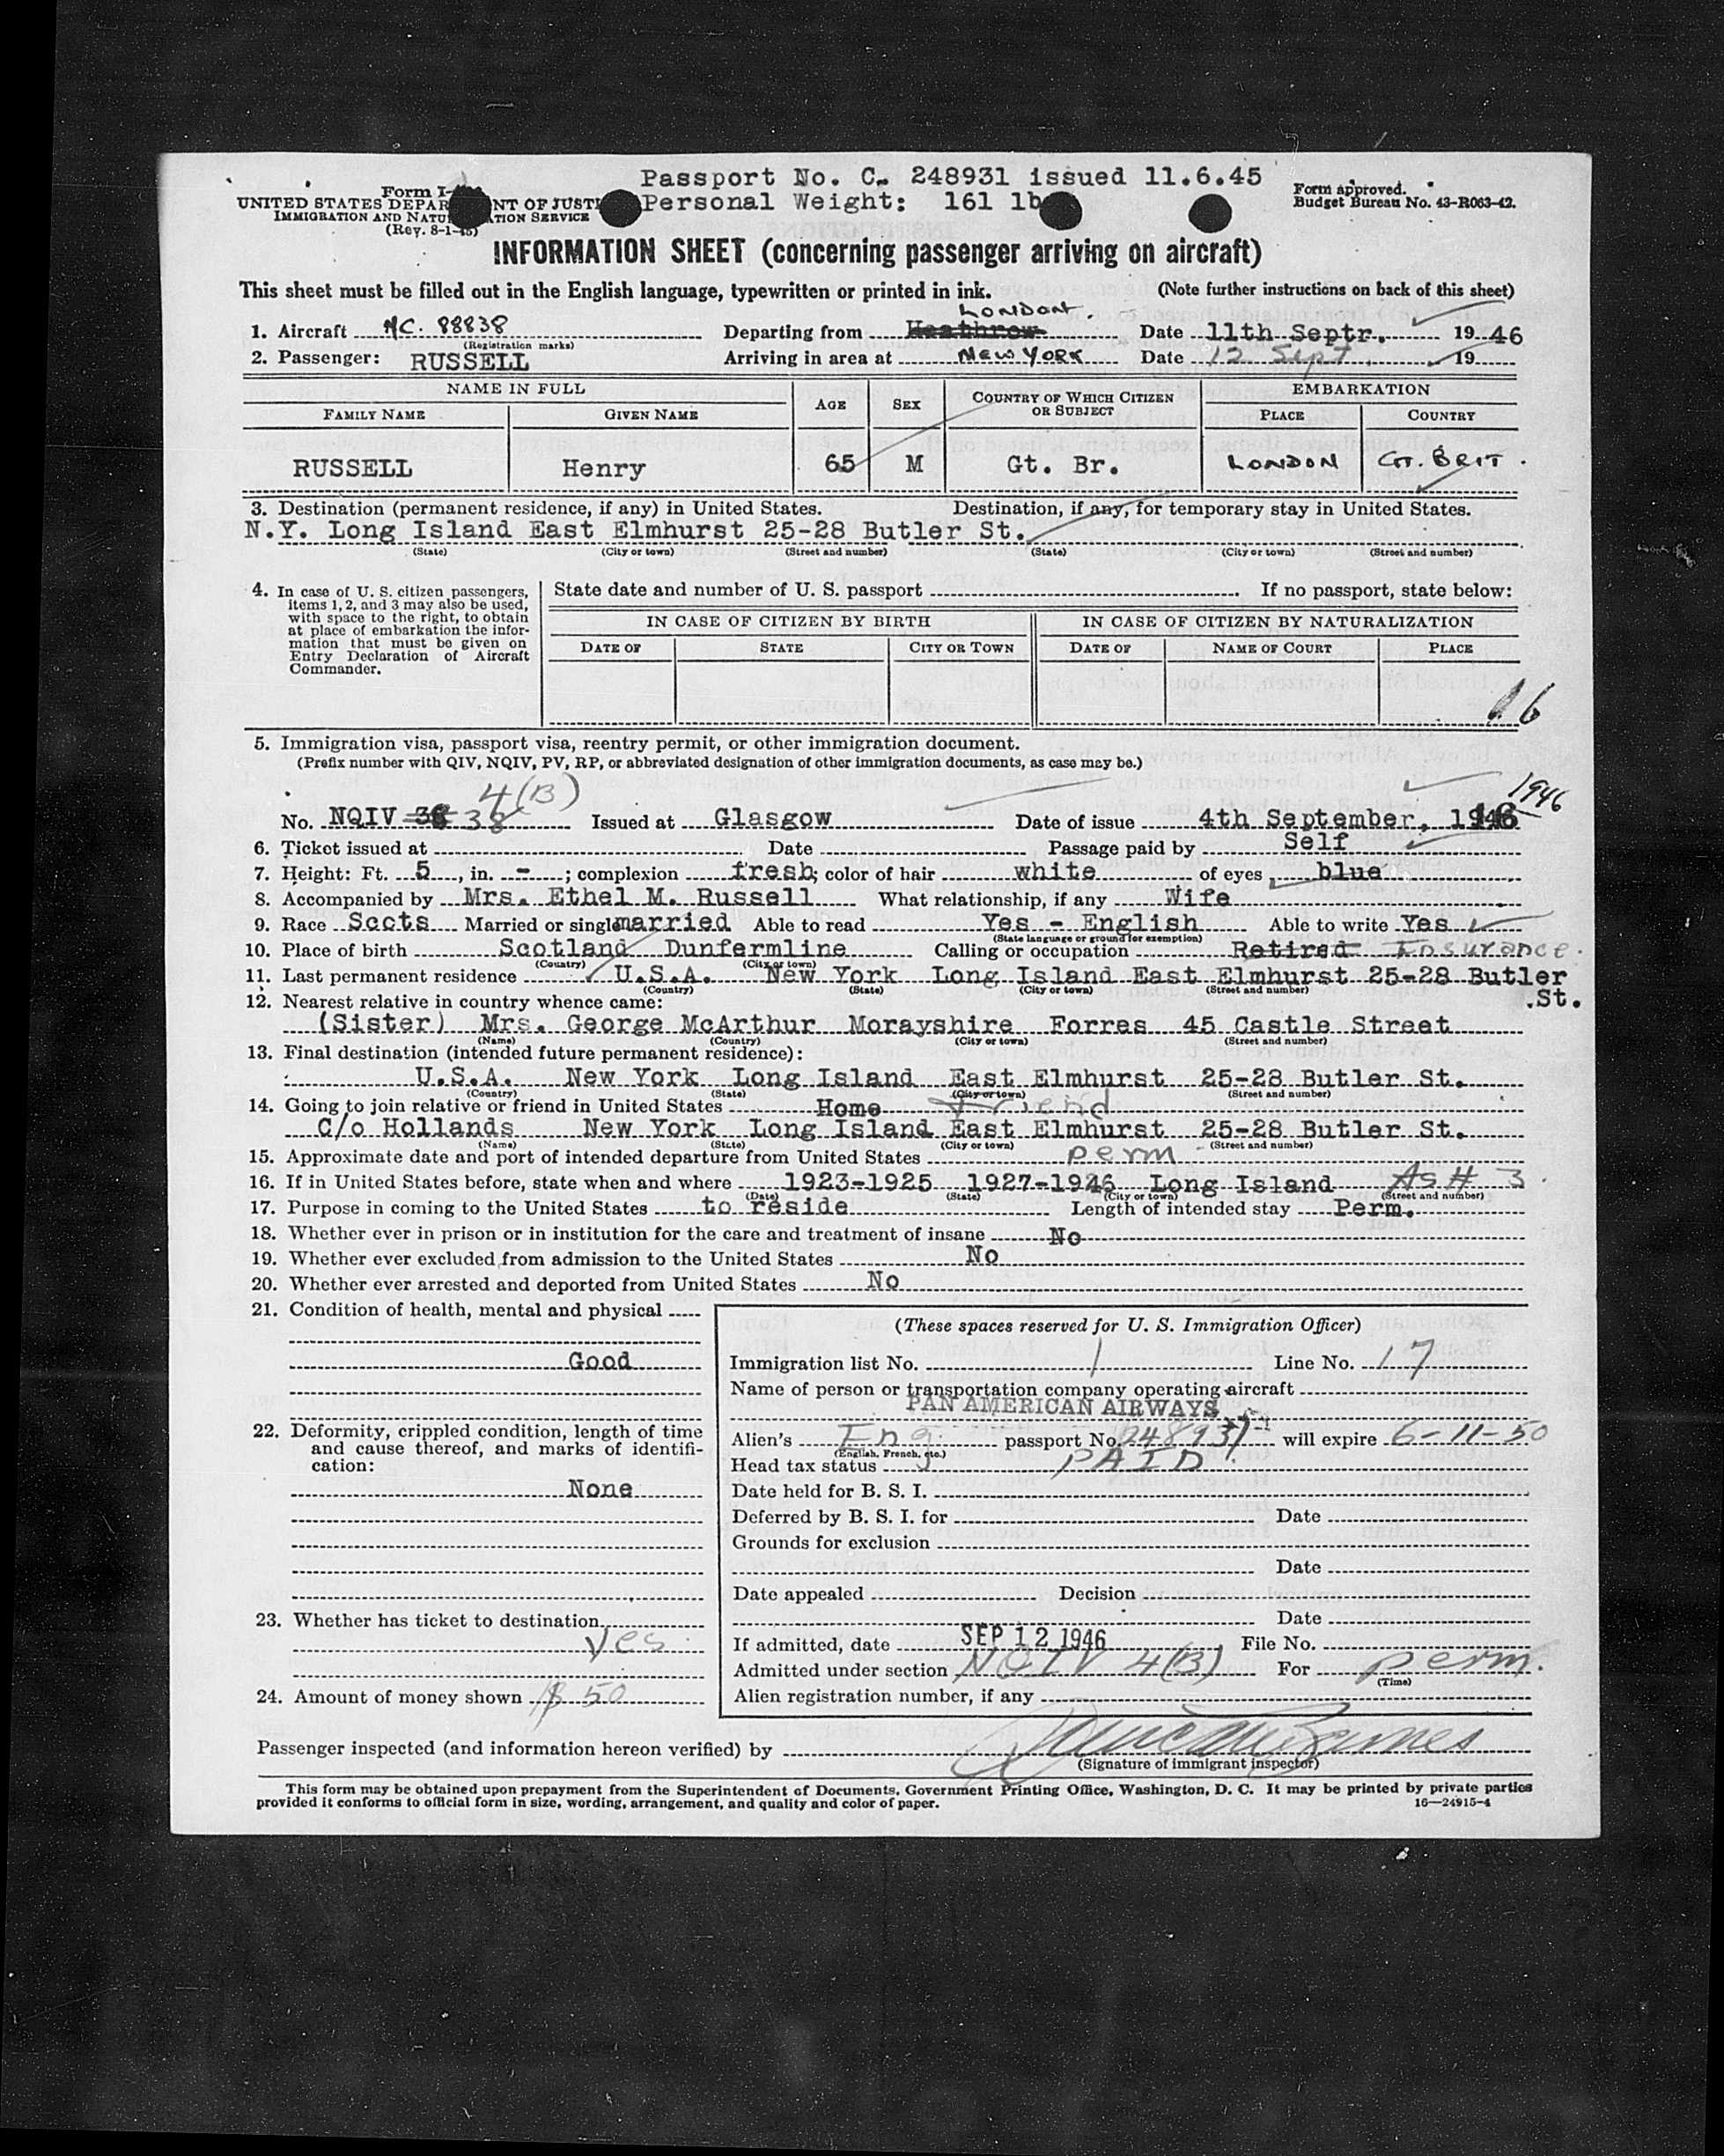 Passport No. C. 248931 issued 11.6.45
Personal Weight: 161 lb
Form I-
UNITED STATES DEPAR NT OF JUSTI
IMMIGRATION AND NATU TION SERVICE
(Rev. 8-1-45)
Form approved.
Budget Bureau No. 43-R063-42.
INFORMATION SHEET (concerning passenger arriving on aircraft)
This sheet must be filled out in the English language, typewritten or printed in ink. (Note further instructions on back of this sheet)
LONDON.
1. Aircraft NC. 88838 Departing from Heathrow Date 11th Septr. 1946
(Registration marks)
2. Passenger: RUSSELL Arriving in area at NEW YORK Date 12 Sept. 19
NAME IN FULL AGE SEX COUNTRY OF WHICH CITIZEN OR SUBJECT EMBARKATION
FAMILY NAME GIVEN NAME PLACE COUNTRY
RUSSELL Henry 65 M Gt. Br. LONDON GT. BRIT.
3. Destination (permanent residence, if any) in United States. Destination, if any, for temporary stay in United States.
N.Y. Long Island East Elmhurst 25-28 Butler St.
(State) (City or town) (Street and number) (State) (City or town) (Street and number)
4. In case of U. S. citizen passengers, items 1, 2, and 3 may also be used, with space to the right, to obtain at place of embarkation the information that must be given on Entry Declaration of Aircraft Commander.
State date and number of U. S. passport If no passport, state below:
IN CASE OF CITIZEN BY BIRTH IN CASE OF CITIZEN BY NATURALIZATION
DATE OF STATE CITY OR TOWN DATE OF NAME OF COURT PLACE
16
5. Immigration visa, passport visa, reentry permit, or other immigration document.
(Prefix number with QIV, NQIV, PV, RP, or abbreviated designation of other immigration documents, as case may be.)
4(B) 1946
No. NQIV 38 Issued at Glasgow Date of issue 4th September, 1946
6. Ticket issued at Date Passage paid by Self
7. Height: Ft. 5, in. -; complexion fresh; color of hair white of eyes blue
8. Accompanied by Mrs. Ethel M. Russell What relationship, if any Wife
9. Race Scots Married or single married Able to read Yes - English Able to write Yes
(State language or ground for exemption)
10. Place of birth Scotland Dunfermline Calling or occupation Retired Insurance.
(Country) (City or town)
11. Last permanent residence U.S.A. New York Long Island East Elmhurst 25-28 Butler St.
(Country) (State) (City or town) (Street and number)
12. Nearest relative in country whence came:
(Sister) Mrs. George McArthur Morayshire Forres 45 Castle Street
(Name) (Country) (City or town) (Street and number)
13. Final destination (intended future permanent residence):
U.S.A. New York Long Island East Elmhurst 25-28 Butler St.
(Country) (State) (City or town) (Street and number)
14. Going to join relative or friend in United States Home Friend
C/o Hollands New York Long Island East Elmhurst 25-28 Butler St.
(Name) (State) (City or town) (Street and number)
15. Approximate date and port of intended departure from United States perm
16. If in United States before, state when and where 1923-1925 1927-1946 Long Island As # 3
(Date) (State) (City or town) (Street and number)
17. Purpose in coming to the United States to reside Length of intended stay Perm.
18. Whether ever in prison or in institution for the care and treatment of insane No
19. Whether ever excluded from admission to the United States No
20. Whether ever arrested and deported from United States No
21. Condition of health, mental and physical
Good
22. Deformity, crippled condition, length of time and cause thereof, and marks of identification:
None
23. Whether has ticket to destination
Yes
24. Amount of money shown $ 50
(These spaces reserved for U. S. Immigration Officer)
Immigration list No. 1 Line No. 17
Name of person or transportation company operating aircraft
PAN AMERICAN AIRWAYS
Alien's Eng. passport No. 248931 will expire 6-11-50
(English, French, etc.)
Head tax status PAID
Date held for B. S. I.
Deferred by B. S. I. for Date
Grounds for exclusion
Date
Date appealed Decision
Date
If admitted, date SEP 12 1946 File No.
Admitted under section NQIV 4(B) For perm.
(Time)
Alien registration number, if any
Passenger inspected (and information hereon verified) by
(Signature of immigrant inspector)
This form may be obtained upon prepayment from the Superintendent of Documents, Government Printing Office, Washington, D. C. It may be printed by private parties
provided it conforms to official form in size, wording, arrangement, and quality and color of paper. 16—24915-4